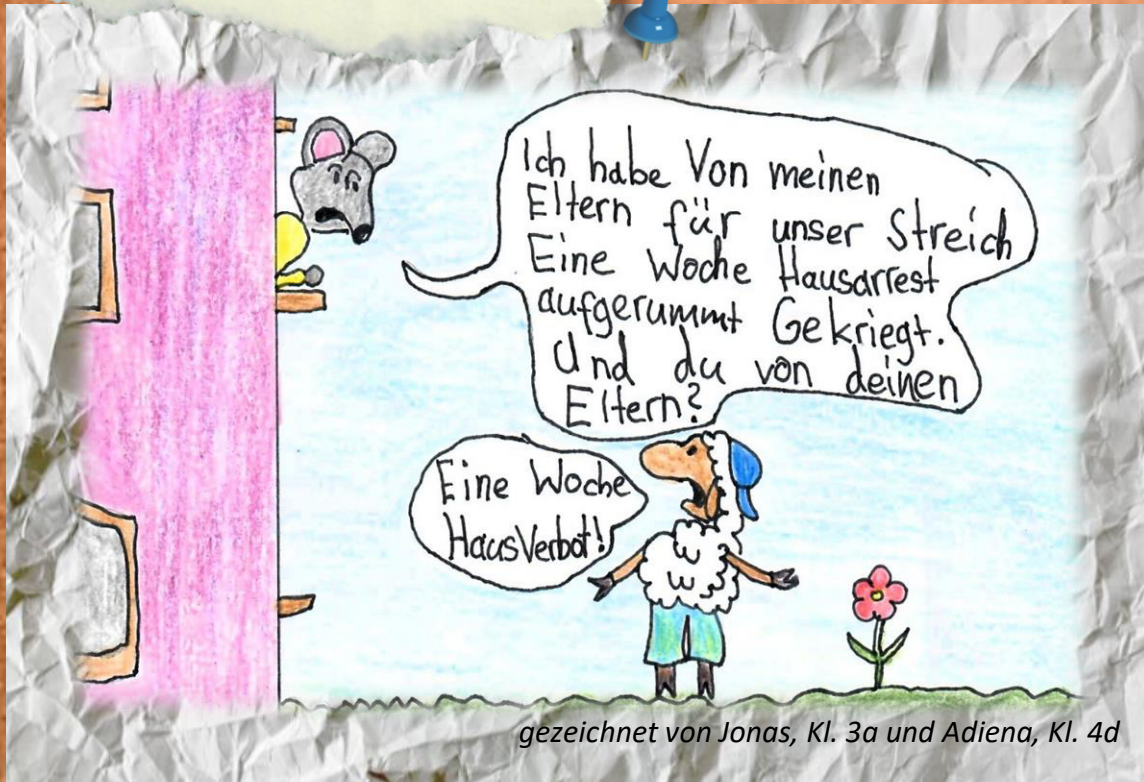 Ich habe Von meinen
Eltern für unser Streich
Eine Woche Hausarrest
aufgerummt Gekriegt.
Und du von deinen
Eltern?
Eine Woche
HausVerbot!
gezeichnet von Jonas, Kl. 3a und Adiena, Kl. 4d